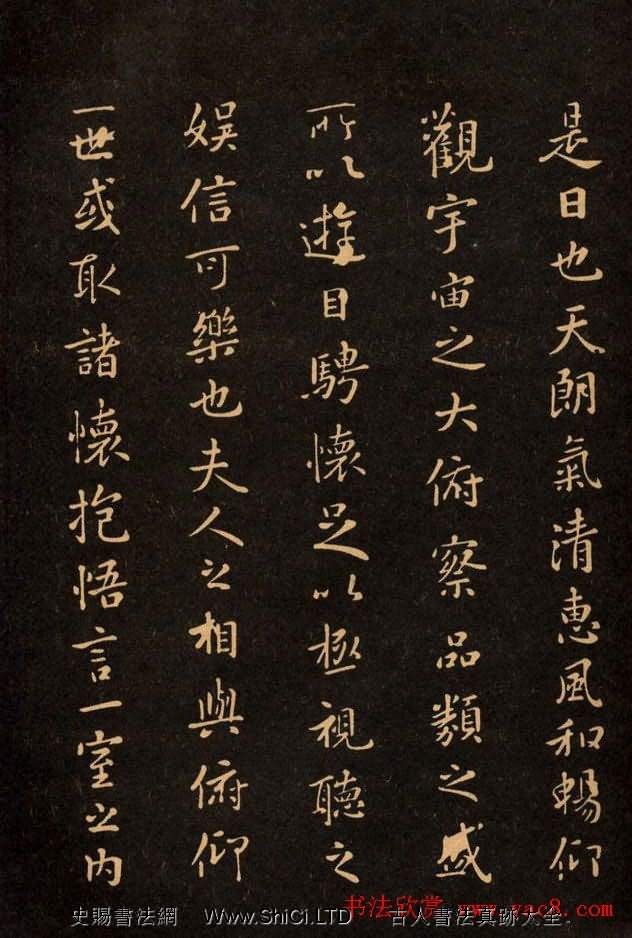 是日也天朗氣清惠風和暢仰
觀宇宙之大俯察品類之盛
所以遊目騁懷足以極視聽之
娛信可樂也夫人之相與俯仰
一世或取諸懷抱悟言一室之内
史賜書法網 WWW.ShiCi.LTD 古人書法真跡大全.
书法欣赏 www.yac8.com